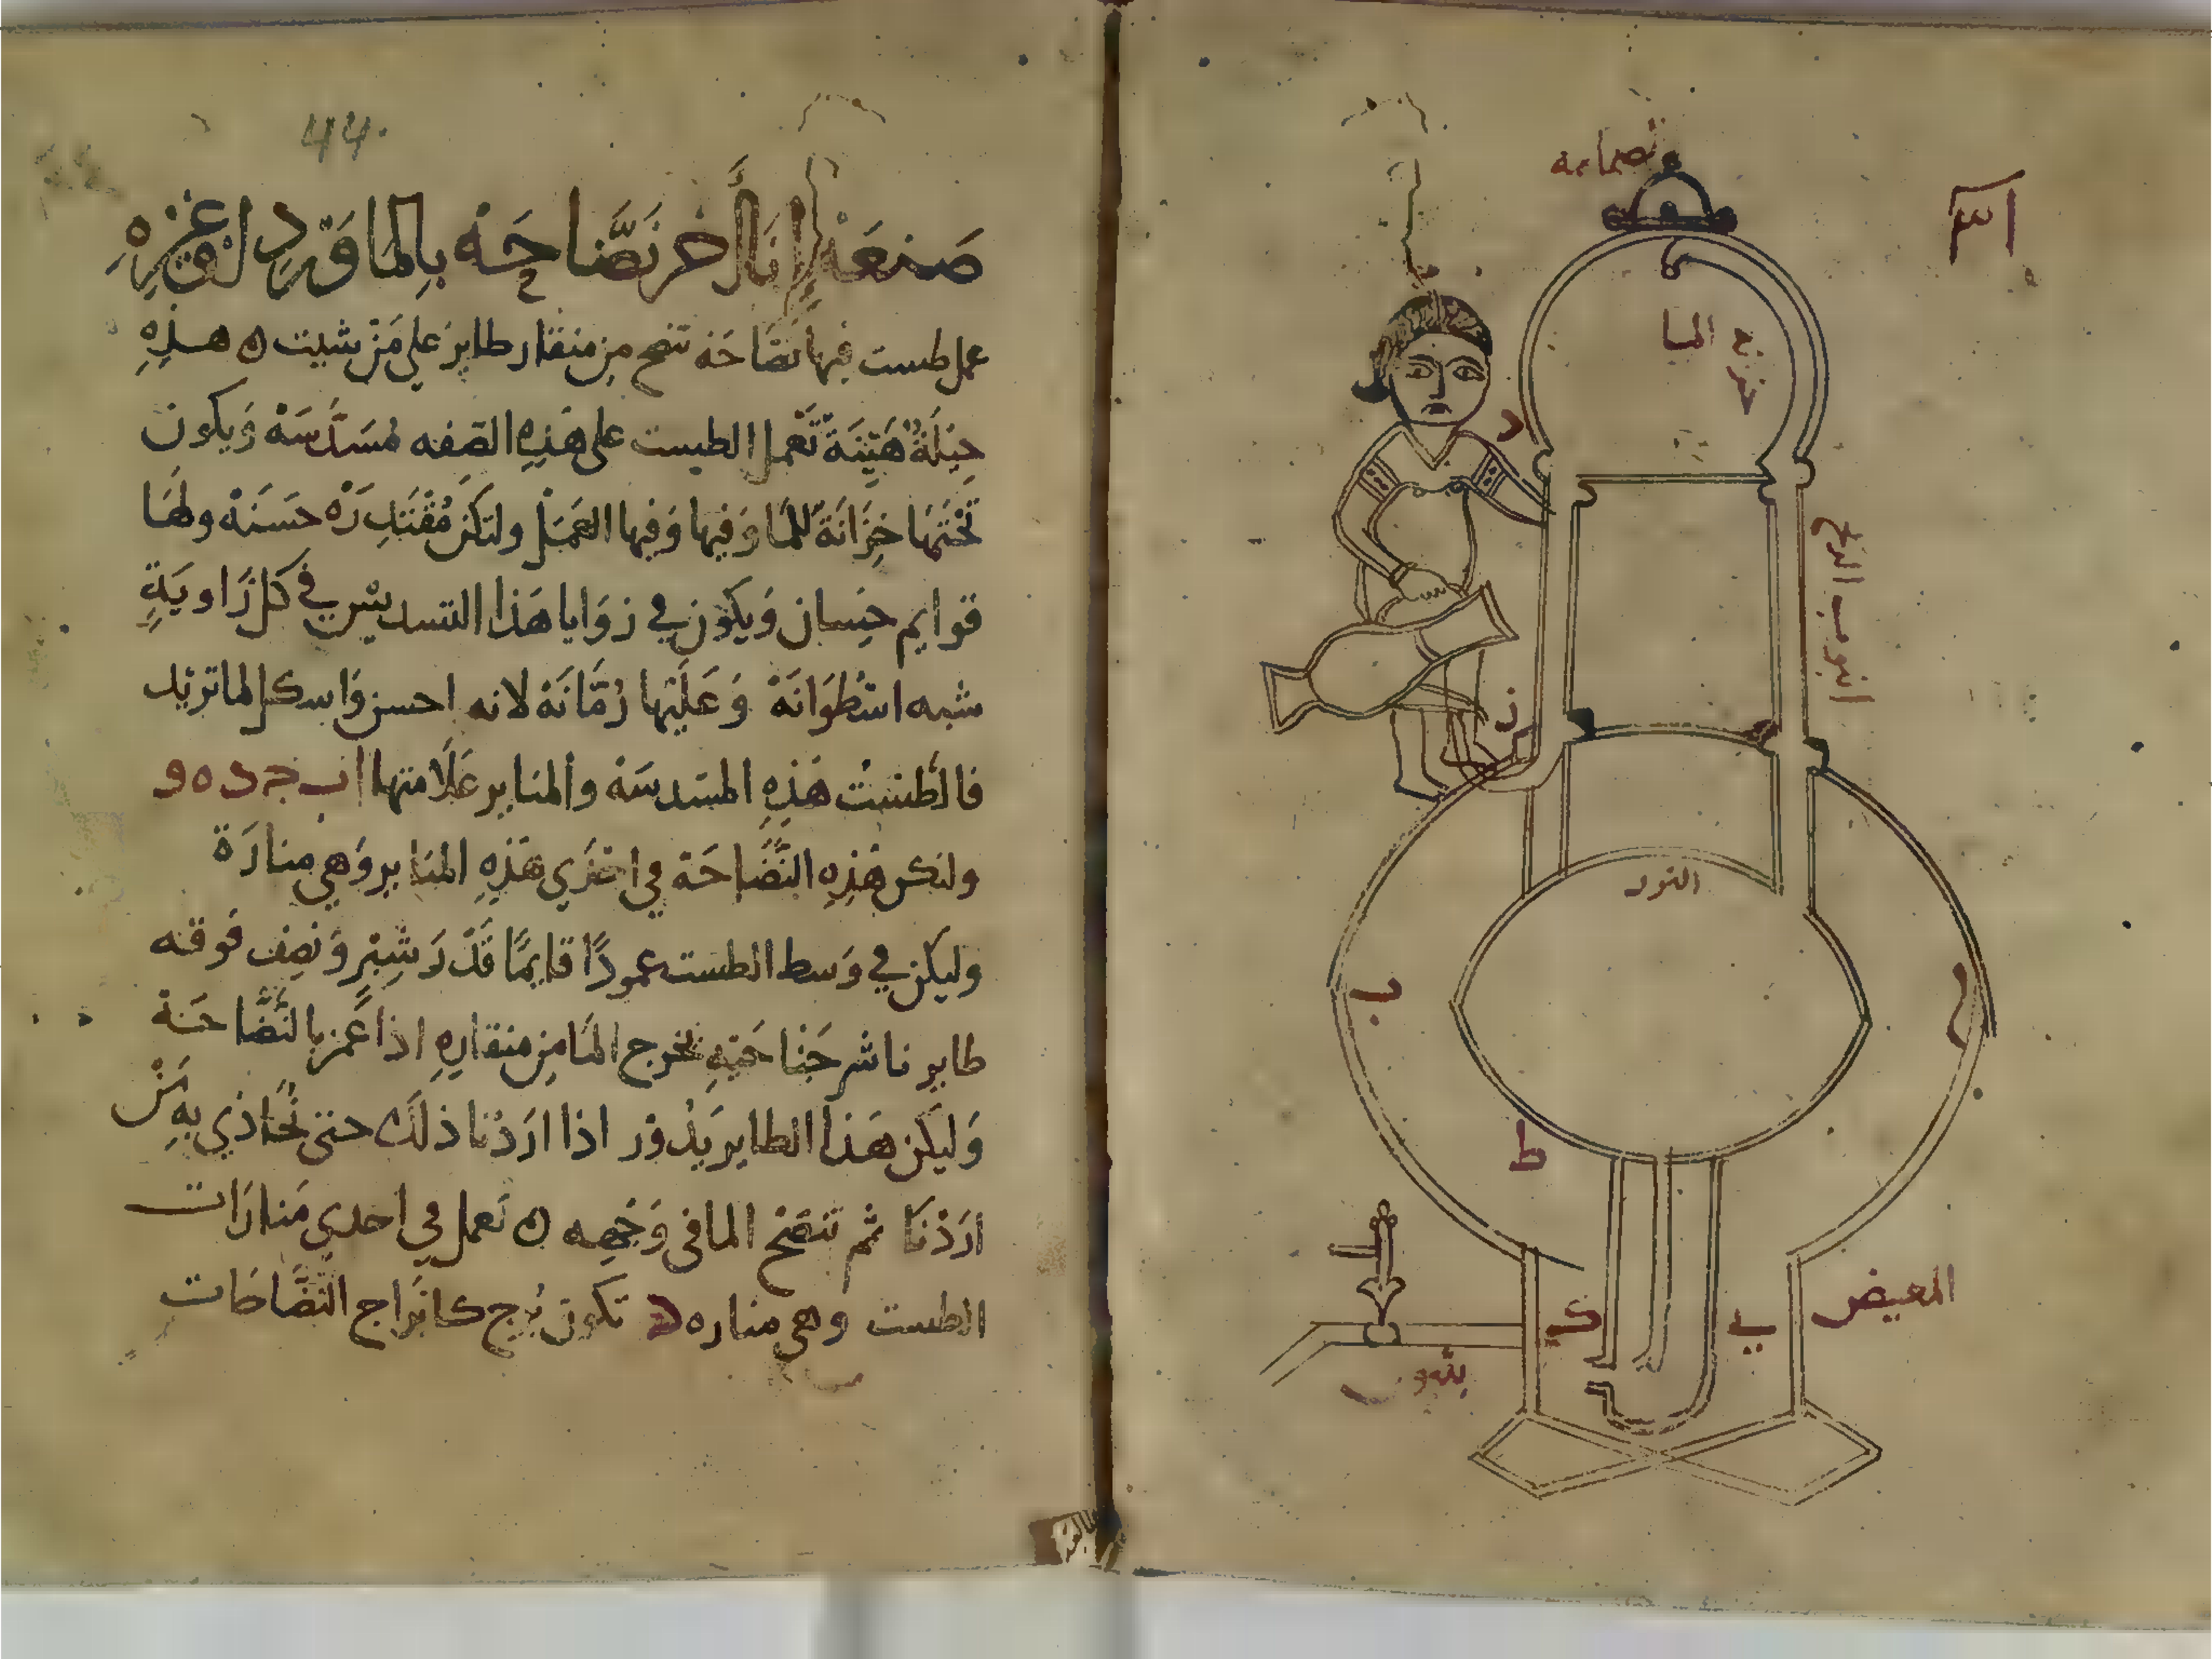 صمامه
مخرج الما
د
انبوب الدخ
ز
النور
ب
ح
ط
المغيض
ك
ي
بثيون
44
صَنعَة إِنَا أَخر نَضَّاحَه بِالمَاوَرد
عمل طست فيها نضَاحَه تنضح من منقار طاير على مَن شيت ه هـذِهِ
حِيلَة هَيِّنَة تَعمل الطيست على هَذِهِ الصفه مُسَدَّسَة وَيكون
تَحْتَهَا خِزَانَة للمَا وَفيها وَفيها العَمَل ولتكن مُقْتَدِرَة حَسَنَة ولهَا
قوايم حِسان وَيكون في زوَايا هَذا التسديس في كل زَاويَةٍ
شبه اسْطُوَانَة وَعَلَيْهَا رُمَّانَة لانه احسن وَاسكل لما تريد
فالطست هَذِهِ المسَدسَة والمنابر عَلَامتها ا ب ج د ه و
ولتكن هَذِهِ النَّضَّاحَة في احدَي هَذِهِ المنابر وَهي منارَة
وليكن في وَسط الطست عمودًا قايمًا قَدَر شِبْر وَنصف فوقه
طاير ناشر جَنَاحَيْهِ يخرج المَا مِن منقارِهِ اذا غمز بالنَضَّاحَة
وَليكن هَذا الطاير يَدُور اذا ارَدْنا ذلَك حتى نُحَاذي بِهِ مَنْ
ارَدْنَا ثم تنضح الما في وَجْهه ه نَعمل في احدي مَنارَات
الطست وهي مناره د تكون بُرج كابرَاج النَضَّاحَات